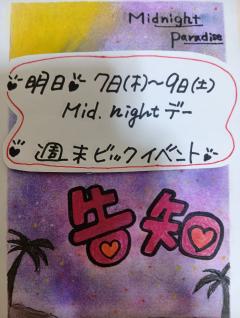 Midnight
Paradise
明日 7日(木)～9日(土)
Mid.nightデー
週末ビックイベント
告知